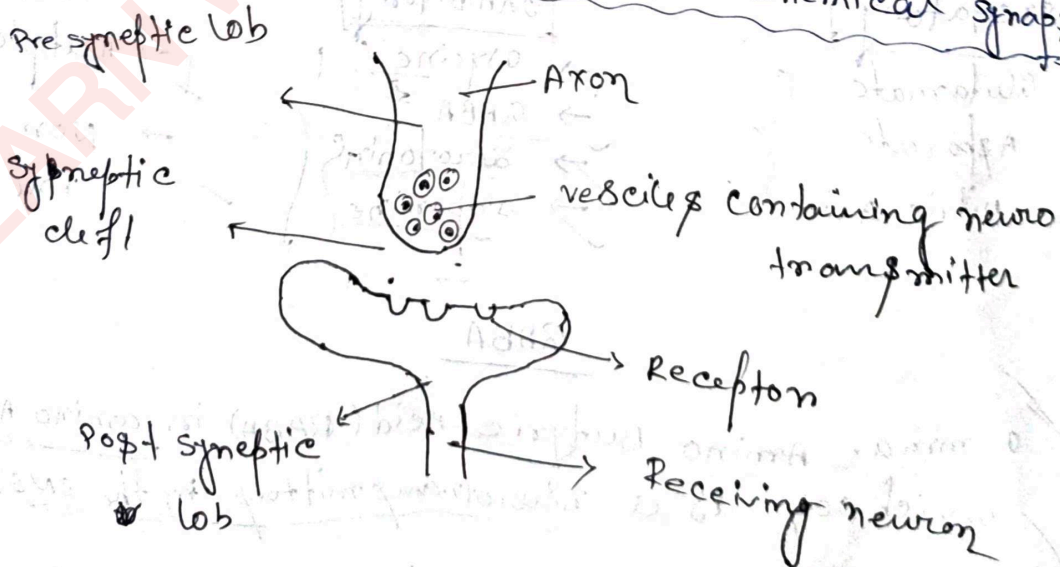 emical synap
Pre syneptic lob
Axon
Sypneptic
cleft
vesciles containing neuro
transmitter
Receptor
Post syneptic
lob
Receiving neuron
LARN